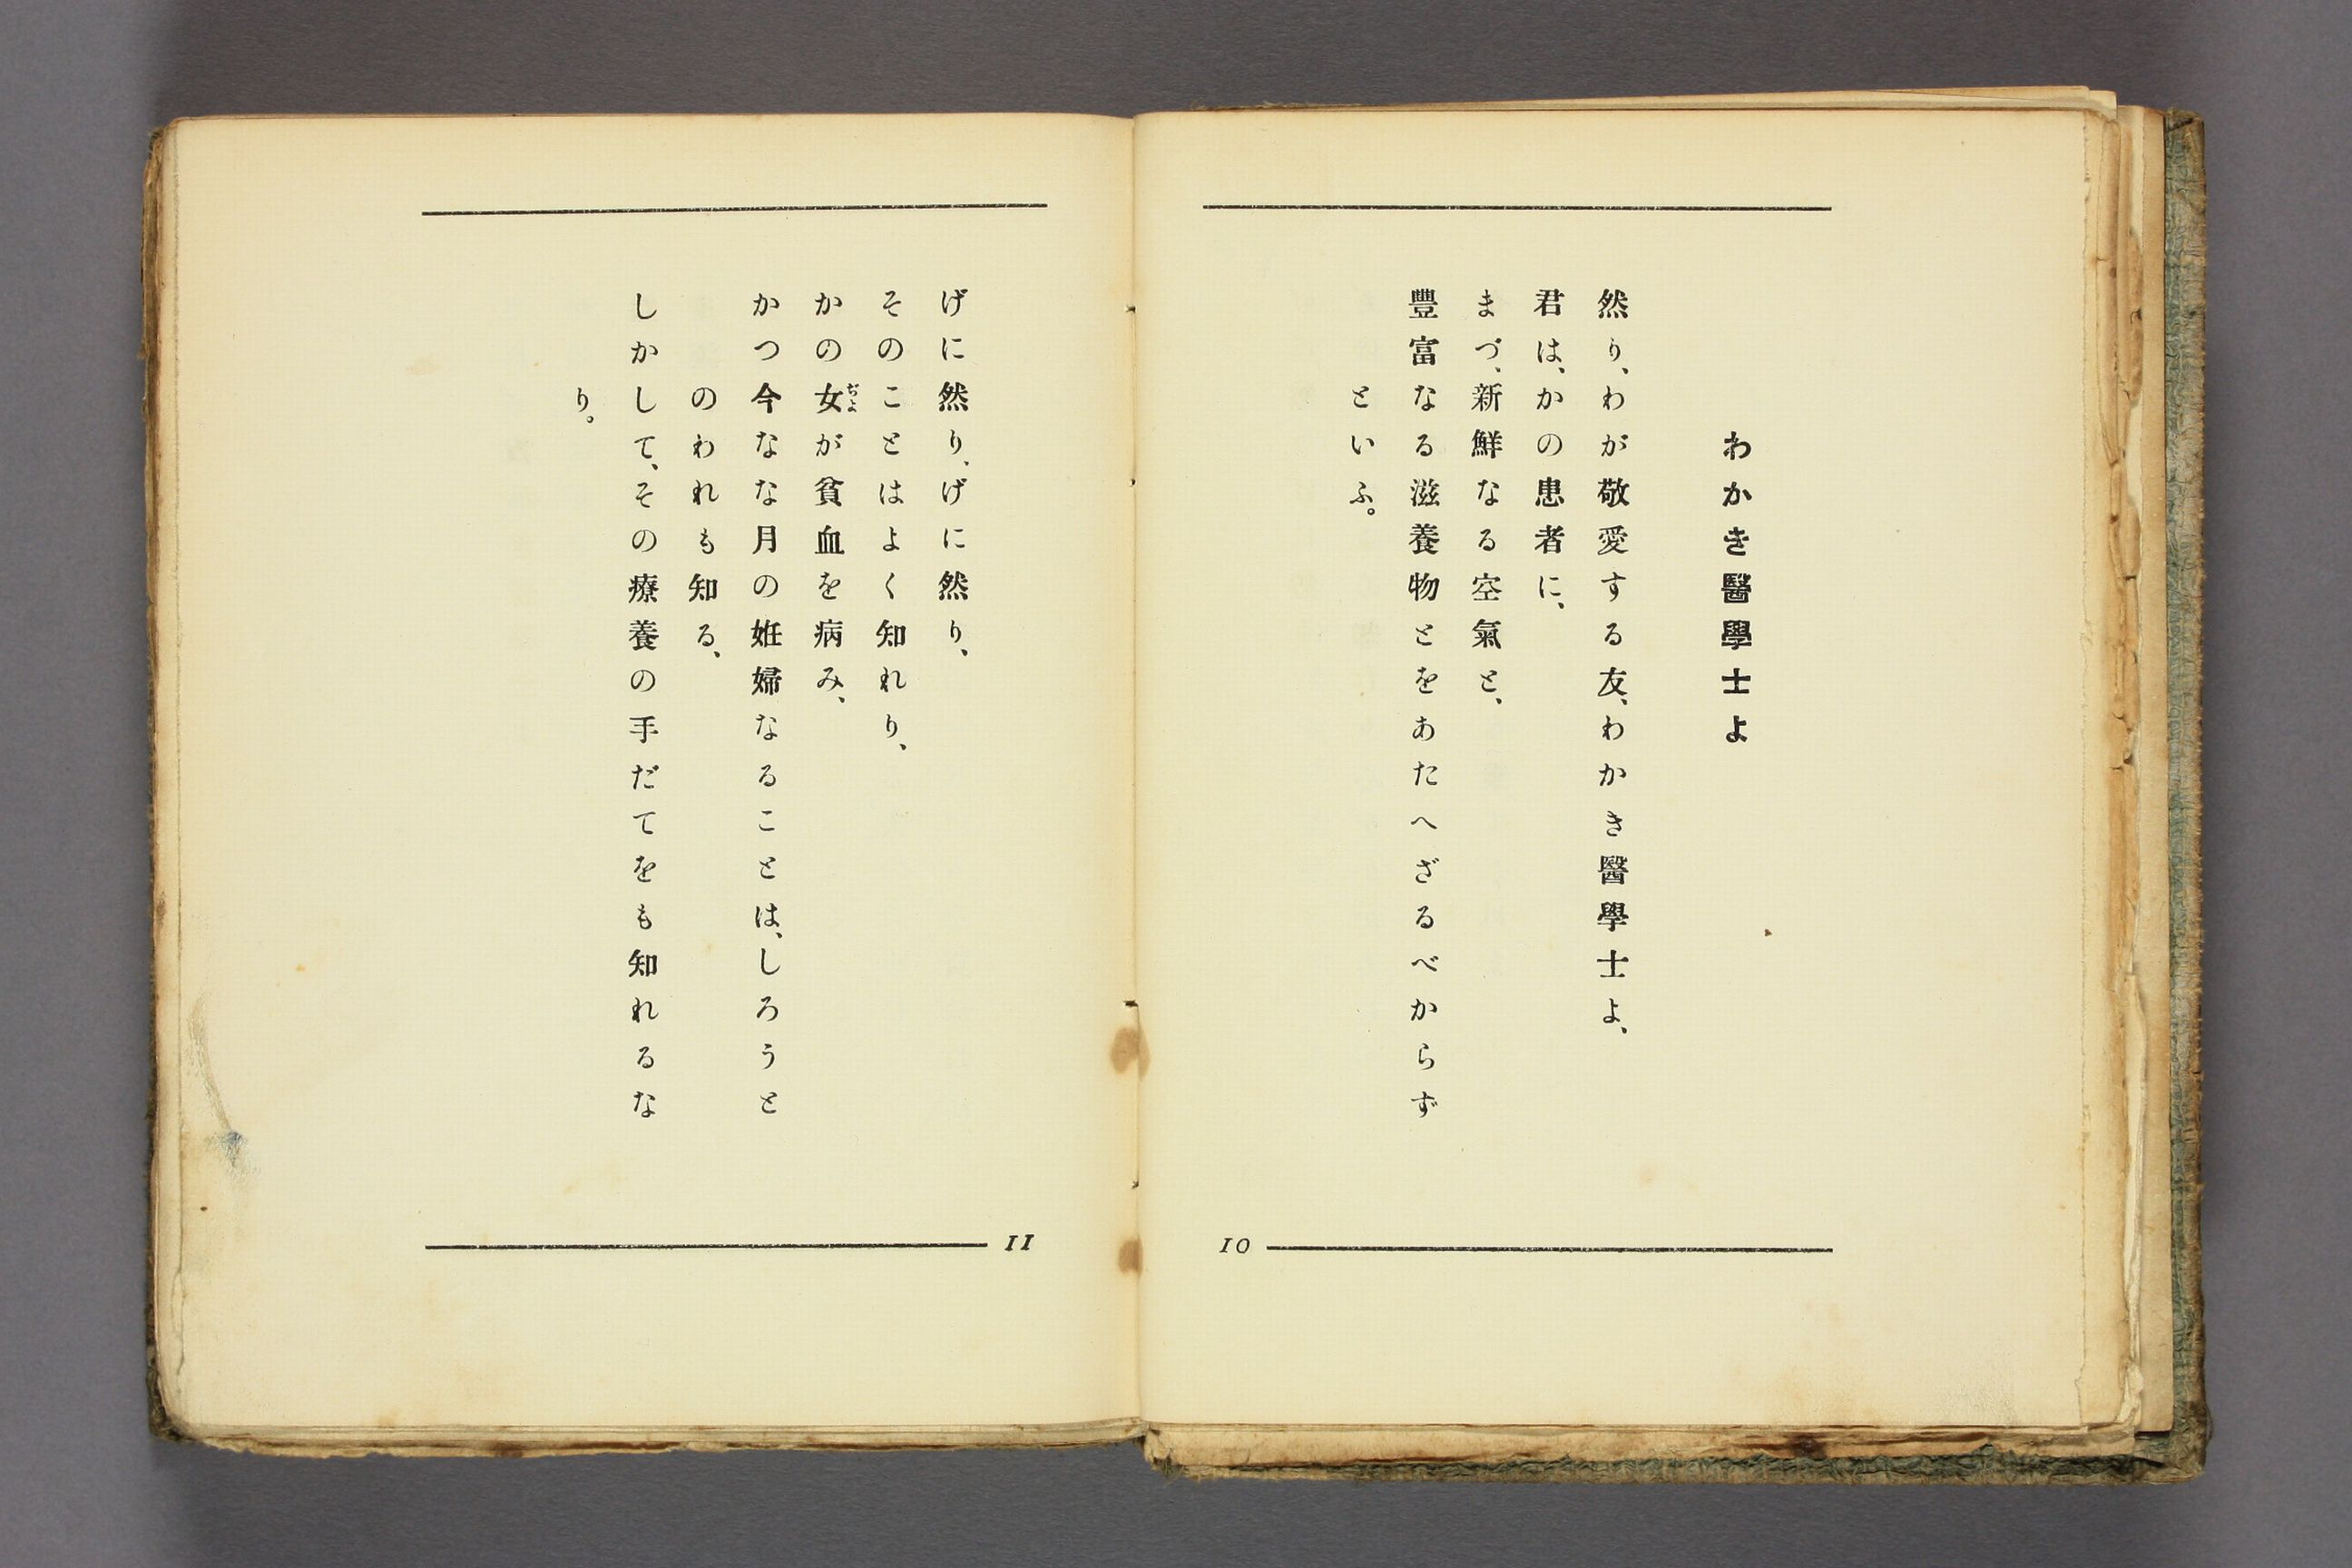 わかき醫學士よ
然り、わが敬愛する友、わかき醫學士よ、
君は、かの患者に、
まづ、新鮮なる空氣と、
豐富なる滋養物とをあたへざるべからず
といふ。
10
げに然り、げに然り、
そのことはよく知れり、
かの女が貧血を病み、
かつ今なな月の姙婦なることは、しろうと
のわれも知る、
しかして、その療養の手だてをも知れるな
り。
11